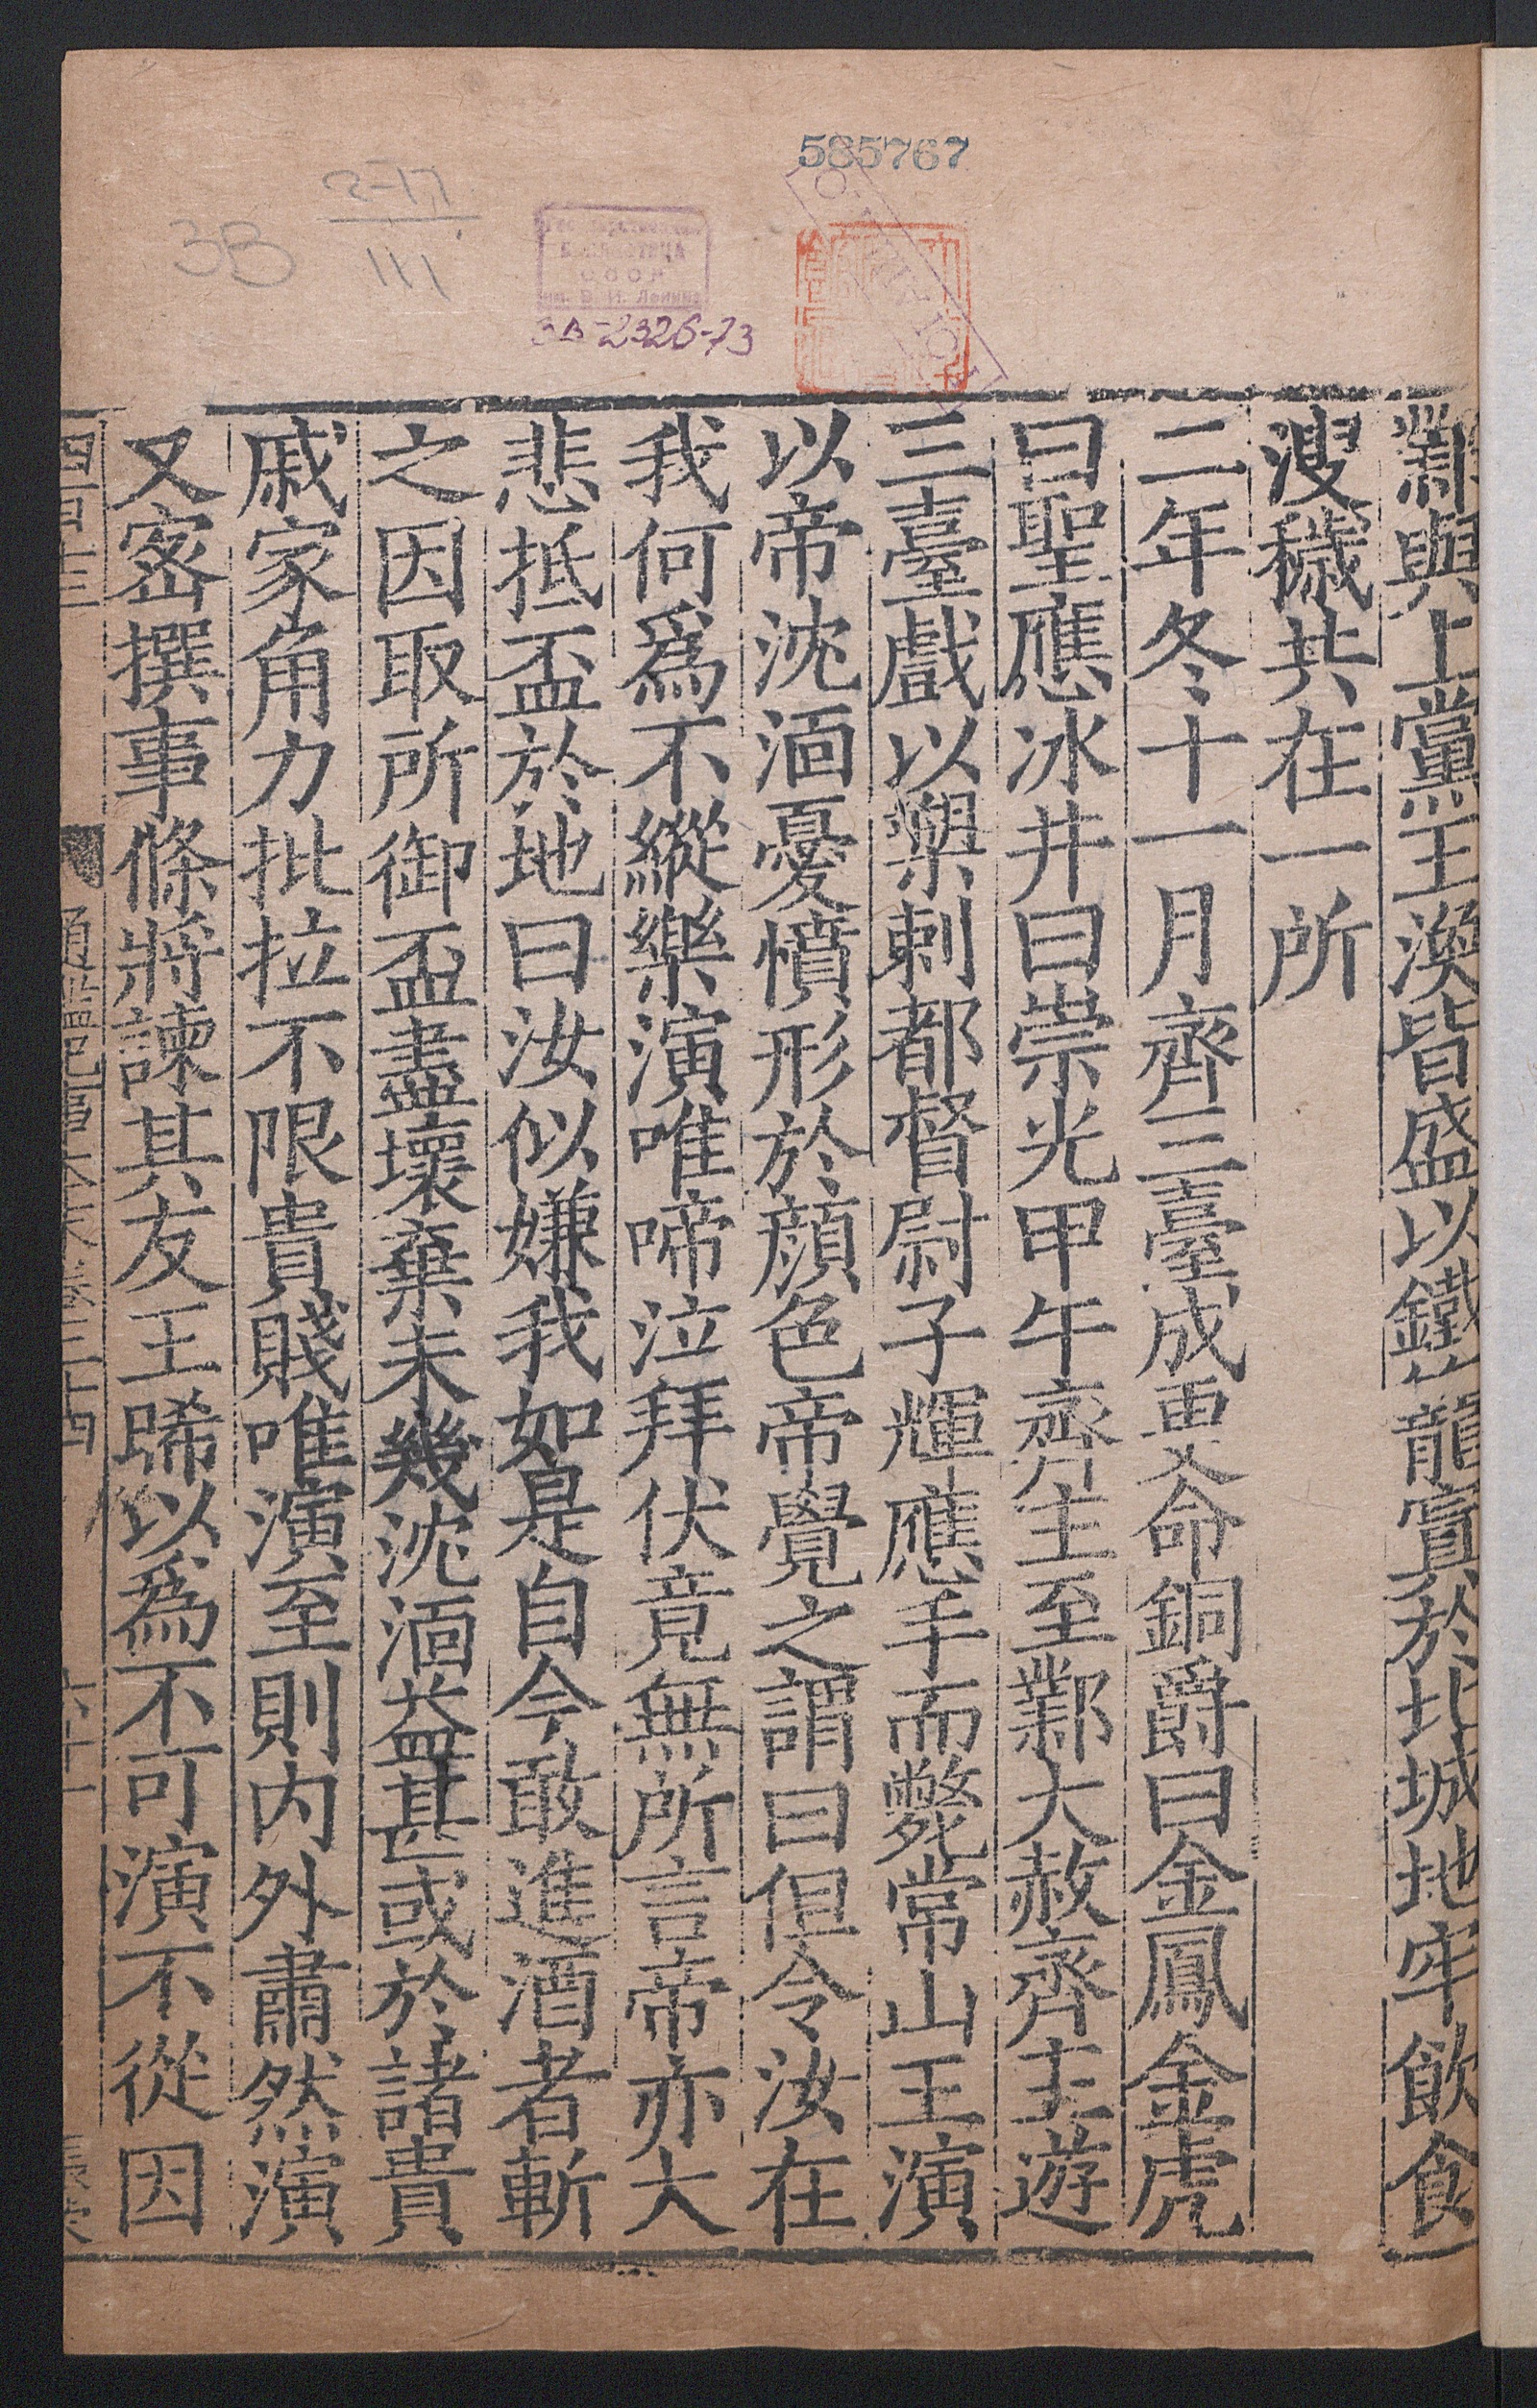 585767
2-17
3B
111
3В-2326-73
鄴與上黨王渙皆盛以鐵籠寘於北城地牢飲食
溲穢共在一所
二年冬十一月齊三臺成更命銅爵曰金鳳金虎
曰聖應冰井曰崇光甲午齊主至鄴大赦齊主遊
三臺戲以槊刺都督尉子輝應手而斃常山王演
以帝沈湎憂憤形於顔色帝覺之謂曰但令汝在
我何爲不縱樂演唯啼泣拜伏竟無所言帝亦大
悲抵盃於地曰汝似嫌我如是自今敢進酒者斬
之因取所御盃盡壞棄未幾沈湎益甚或於諸貴
戚家角力批拉不限貴賤唯演至則内外肅然演
又密撰事條將諫其友王晞以爲不可演不從因
四百十三
通鑑紀事本末卷二十四
六十一